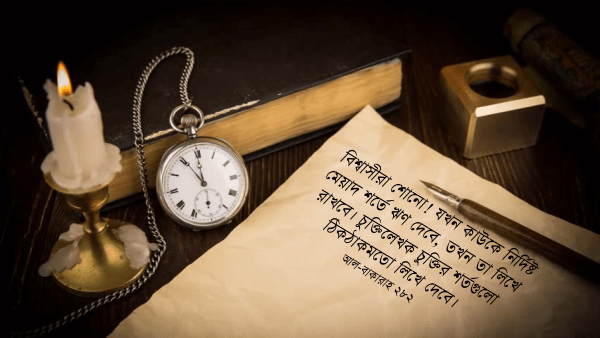 বিশ্বাসীরা শোনো! যখন কাউকে নির্দিষ্ট
মেয়াদ শর্তে ঋণ দেবে, তখন তা লিখে
রাখবে। চুক্তিলেখক চুক্তির শর্তগুলো
ঠিকঠাকমতো লিখে দেবে।
আল-বাকারাহ ২৮২